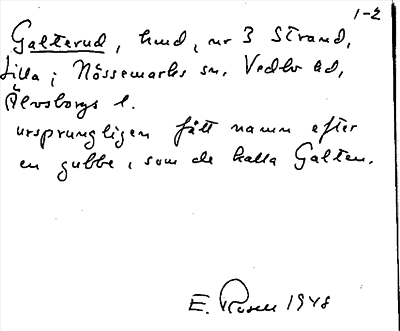 1-2
Galterud, hmd, nr 3 Strand,
Lilla i Nössemarks sn, Vedbo hd,
Älvsborgs l.
ursprungligen fått namn efter
en gubbe, som de kalla Galten.
E. Rosell 1948